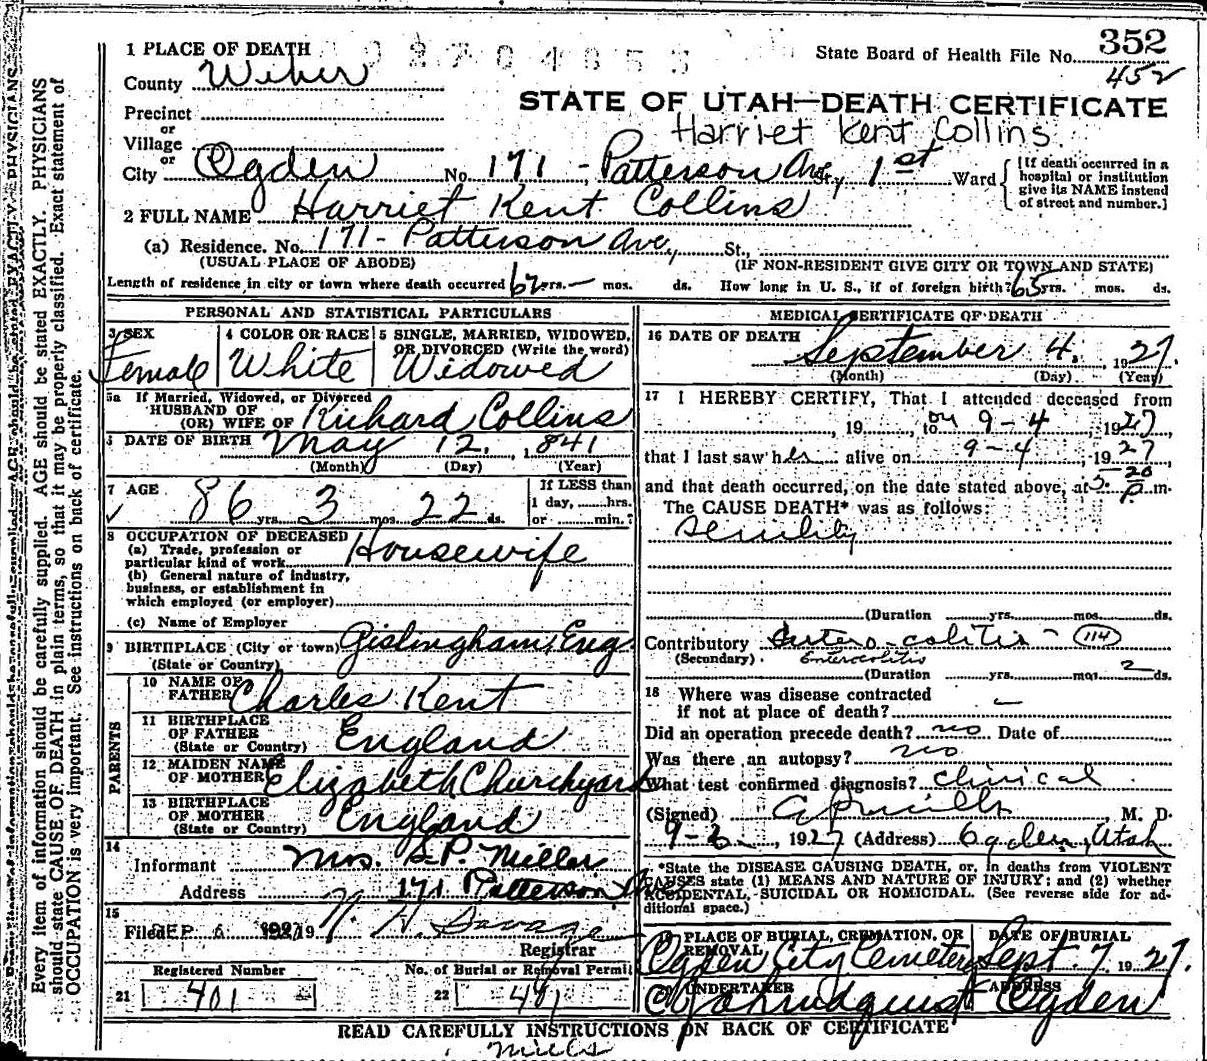 1 PLACE OF DEATH
State Board of Health File No. 352
452
County Weber
STATE OF UTAH—DEATH CERTIFICATE
Precinct
Harriet Kent Collins
or
Village
or
City Ogden No. 171 - Patterson Ave St., 1st Ward
[If death occurred in a
hospital or institution
give its NAME instead
of street and number.]
2 FULL NAME Harriet Kent Collins
(a) Residence. No. 171 - Patterson Ave, St.,
(USUAL PLACE OF ABODE) (IF NON-RESIDENT GIVE CITY OR TOWN AND STATE)
Length of residence in city or town where death occurred 62 yrs. — mos. ds. How long in U. S., if of foreign birth? 65 yrs. mos. ds.
PERSONAL AND STATISTICAL PARTICULARS
3 SEX
Female
4 COLOR OR RACE
White
5 SINGLE, MARRIED, WIDOWED,
OR DIVORCED (Write the word)
Widowed
5a If Married, Widowed, or Divorced
HUSBAND OF
(OR) WIFE OF Richard Collins
6 DATE OF BIRTH May 12, 1841
(Month) (Day) (Year)
7 AGE
86 yrs. 3 mos. 22 ds.
If LESS than
1 day, hrs.
or min.?
8 OCCUPATION OF DECEASED
(a) Trade, profession or
particular kind of work Housewife
(b) General nature of industry,
business, or establishment in
which employed (or employer)
(c) Name of Employer
9 BIRTHPLACE (City or town) Gislingham, Eng.
(State or Country)
PARENTS
10 NAME OF
FATHER Charles Kent
11 BIRTHPLACE
OF FATHER
(State or Country) England
12 MAIDEN NAME
OF MOTHER Elizabeth Churchyard
13 BIRTHPLACE
OF MOTHER
(State or Country) England
14
Informant Mrs. S.P. Miller
Address 171 Patterson Ave
15
Filed SEP 6 1927
Registrar
Registered Number
21 401
No. of Burial or Removal Permit
22 401
MEDICAL CERTIFICATE OF DEATH
16 DATE OF DEATH
September 4, 1927.
(Month) (Day) (Year)
17 I HEREBY CERTIFY, That I attended deceased from
, 19 , to on 9-4, 1927
that I last saw her alive on 9-4, 1927,
and that death occurred, on the date stated above, at 5-20 P. m.
The CAUSE DEATH* was as follows:
Senility
(Duration yrs. mos. ds.
Contributory Entero-colitis - 114
(Secondary) Enterocolitis
(Duration yrs. mos. 2 ds.
18 Where was disease contracted
if not at place of death? —
Did an operation precede death? no Date of
Was there an autopsy? no
What test confirmed diagnosis? clinical
(Signed) M. D.
1927 (Address) Ogden, Utah
*State the DISEASE CAUSING DEATH, or, in deaths from VIOLENT
CAUSES state (1) MEANS AND NATURE OF INJURY; and (2) whether
ACCIDENTAL, SUICIDAL OR HOMICIDAL. (See reverse side for ad-
ditional space.)
PLACE OF BURIAL, CREMATION, OR
REMOVAL
Ogden City Cemetery
DATE OF BURIAL
Sept. 7, 1927.
UNDERTAKER
ADDRESS
Ogden
READ CAREFULLY INSTRUCTIONS ON BACK OF CERTIFICATE
Mills
Every item of information should be carefully supplied. AGE should be stated EXACTLY. PHYSICIANS
should state CAUSE OF DEATH in plain terms, so that it may be properly classified. Exact statement of
OCCUPATION is very important. See instructions on back of certificate.